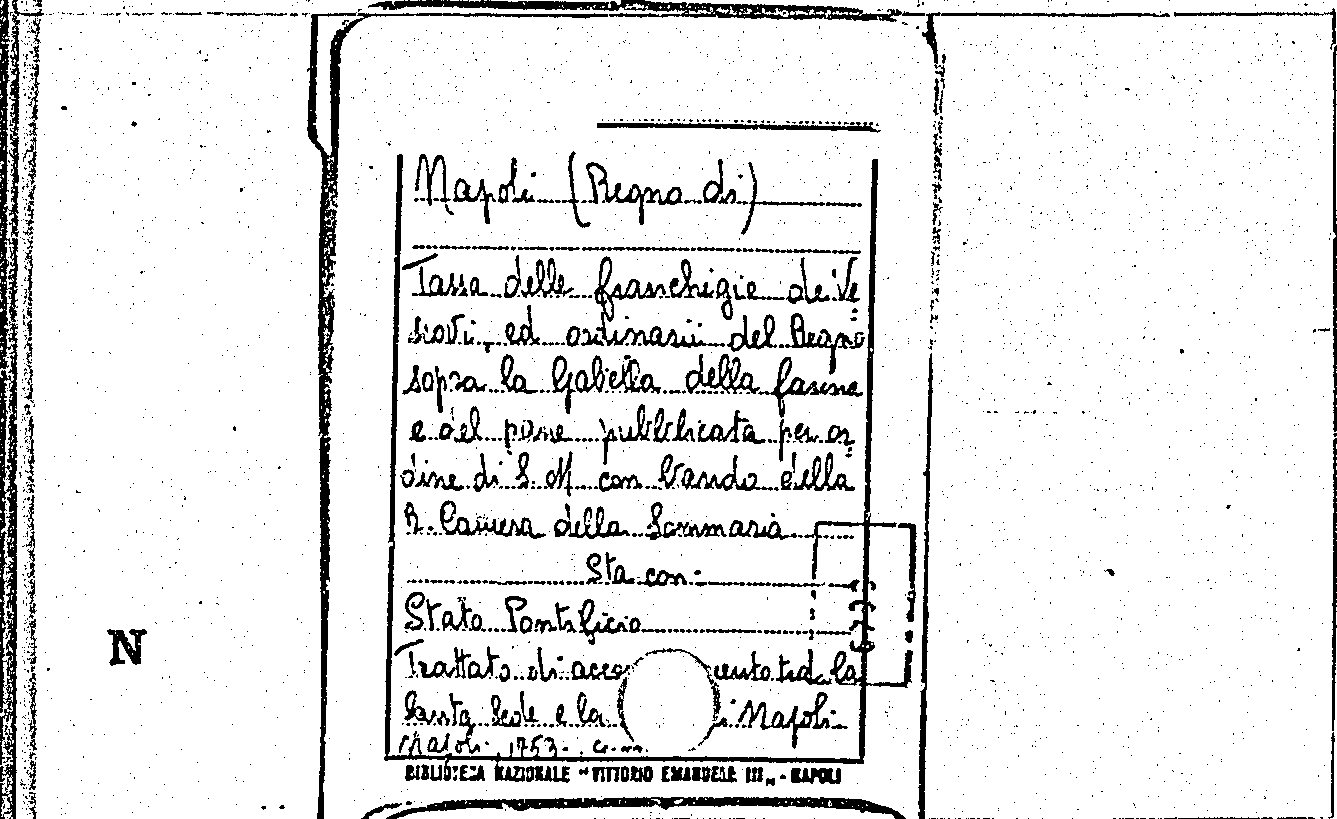 Napoli (Regno di)
Tassa delle franchigie dei Ve
scovi, ed ordinarii del Regno
sopra la Gabella della farina
e del pane pubblicata per or
dine di S. M con bando della
R. Camera della Sommaria
Sta con:
Stato Pontificio
Trattato di acco mento tra la
Santa Sede e la i Napoli
Napoli, 1753.
BIBLIOTECA NAZIONALE "VITTORIO EMANUELE III" - NAPOLI
N